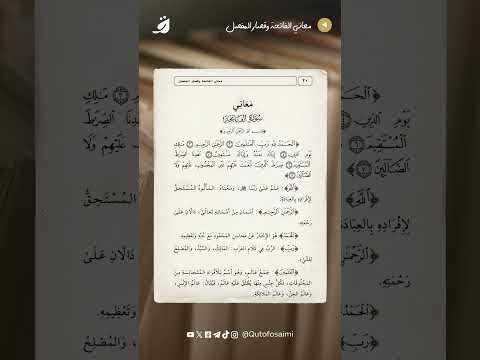 معاني الفاتحة وقصار المفصل
معاني الفاتحة وقصار المفصل
٢٠
مَعَانِي
سُورَةِ الفَاتِحَةِ
﴿بِسْمِ اللَّهِ الرَّحْمَنِ الرَّحِيمِ﴾
﴿الْحَمْدُ لِلَّهِ رَبِّ الْعَالَمِينَ ۝ الرَّحْمَنِ الرَّحِيمِ ۝ مَالِكِ
يَوْمِ الدِّينِ ۝ إِيَّاكَ نَعْبُدُ وَإِيَّاكَ نَسْتَعِينُ ۝ اهْدِنَا الصِّرَاطَ
الْمُسْتَقِيمَ ۝ صِرَاطَ الَّذِينَ أَنْعَمْتَ عَلَيْهِمْ غَيْرِ الْمَغْضُوبِ عَلَيْهِمْ وَلَا
الضَّالِّينَ ۝﴾
﴿اللَّهِ﴾: عَلَمٌ عَلَى رَبِّنَا ﷻ، وَمَعْنَاهُ: المَأْلُوهُ المُسْتَحِقُّ
لِإِفْرَادِهِ بِالعِبَادَةِ.
﴿الرَّحْمَنِ الرَّحِيمِ﴾: اسْمَانِ مِنْ أَسْمَائِهِ تَعَالَى، دَالَّانِ عَلَى
رَحْمَتِهِ.
﴿الْحَمْدُ﴾: هُوَ الإِخْبَارُ عَنْ مَحَاسِنِ المَحْمُودِ مَعَ حُبِّهِ وَتَعْظِيمِهِ.
﴿رَبِّ﴾: الرَّبُّ فِي كَلَامِ العَرَبِ: المَالِكُ، وَالسَّيِّدُ، وَالمُصْلِحُ
لِلشَّيْءِ.
﴿الْعَالَمِينَ﴾: جَمْعُ عَالَمٍ، وَهُوَ اسْمٌ لِلْأَفْرَادِ المُتَجَانِسَةِ مِنَ
المَخْلُوقَاتِ، فَكُلُّ جِنْسٍ مِنْهَا يُطْلَقُ عَلَيْهِ عَالَمٌ، فَيُقَالُ: عَالَمُ الإِنْسِ،
وَعَالَمُ الجِنِّ، وَعَالَمُ المَلَائِكَةِ.
@Qutofosaimi